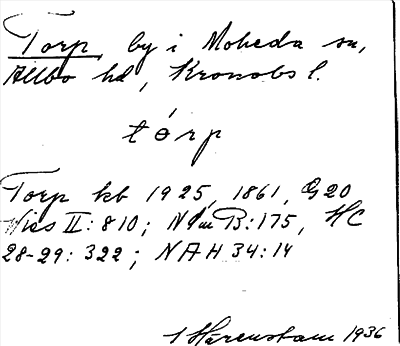 Torp, by i Moheda sn,
Allbo hd, Kronobs l.
tórp
Torp kb 1925, 1861, G20
Wies II: 810; NSmB: 175, HC
28-29: 322; NAH 34:14
Härenstam 1936